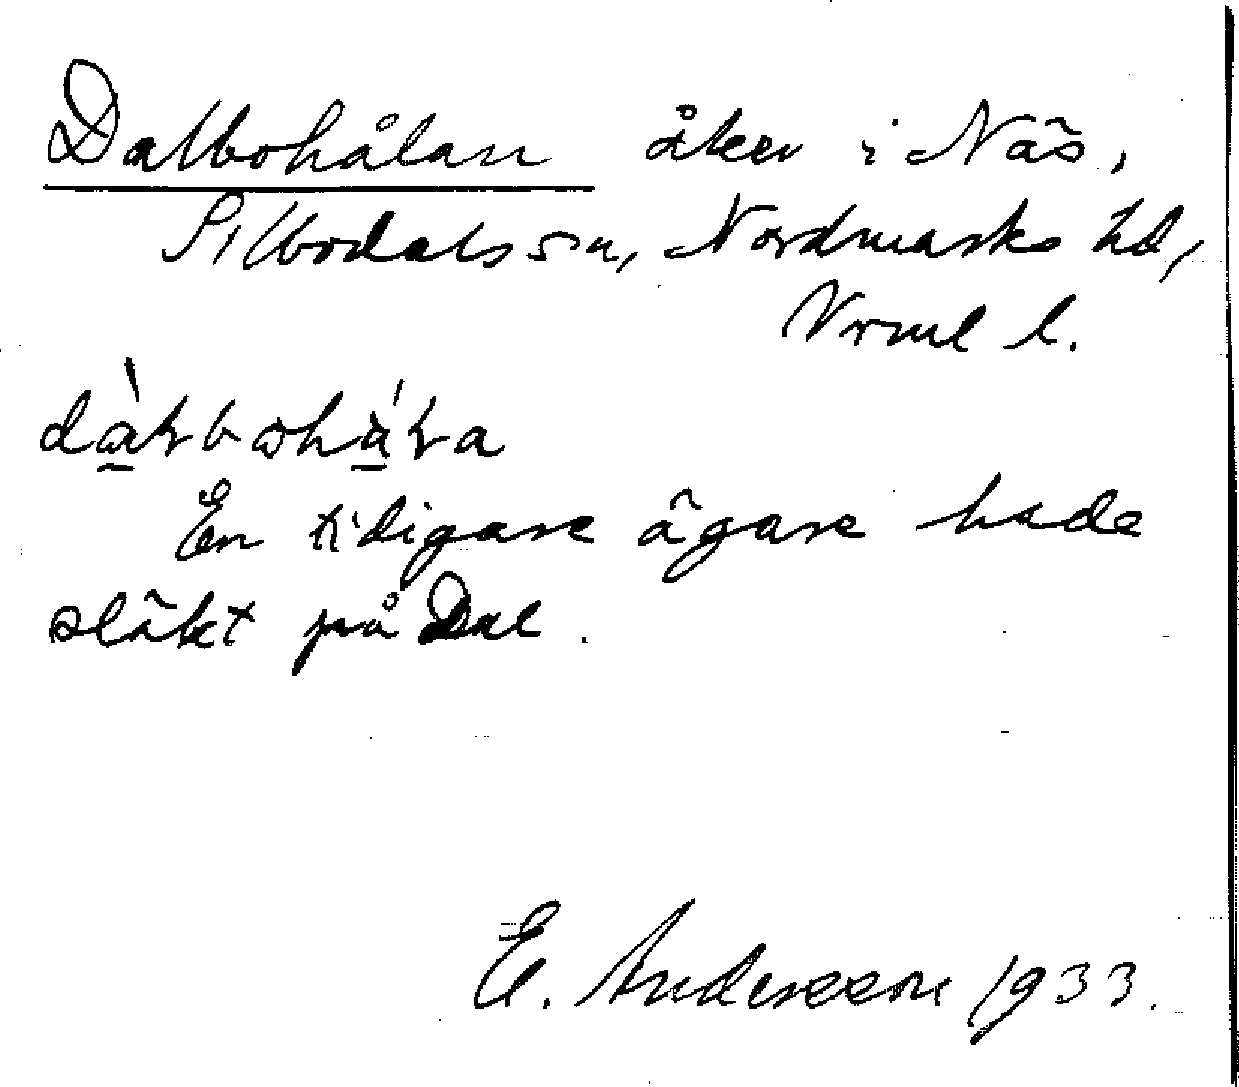 Dalbohålan åker i Näs,
Silbodals sn, Nordmarks hd,
Vrml l.
En tidigare ägare hade
släkt på Dal.
E. Andersson 1933.